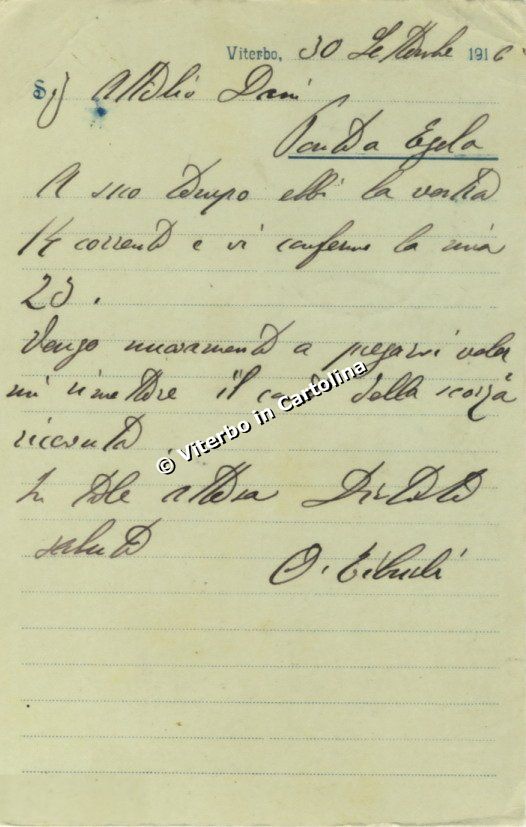 Viterbo, 30 Settembre 1916
Sig Attilio Dani
Ponte a Egola
A suo tempo ebbi la vostra
14 corrente e vi confermo la mia
23.
Vengo nuovamente a pregarvi voler
mi rimettere il della scorza
ricevuta
In tale attesa Distinti
saluti
O.
© Viterbo in Cartolina